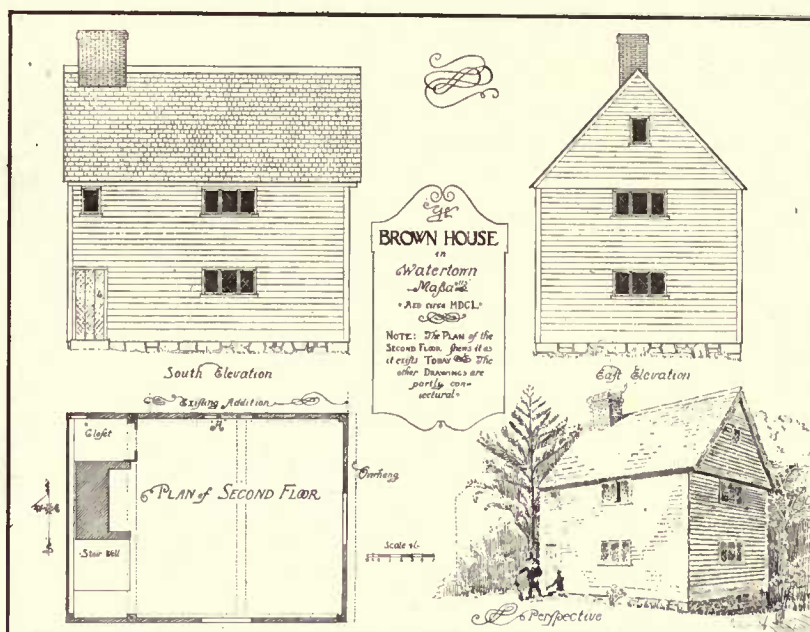 Ye
BROWN HOUSE
in
Watertown
Maſsatts
· AED circa MDCL ·
NOTE: The PLAN of the
SECOND FLOOR ſhews it as
it exiſts TODAY The
other DRAWINGS are
partly con-
jectural ·
South Elevation
East Elevation
Exiſting Addition
"A"
Closet
PLAN of SECOND FLOOR
Overhang
Stair Well
Scale of
Perſpective